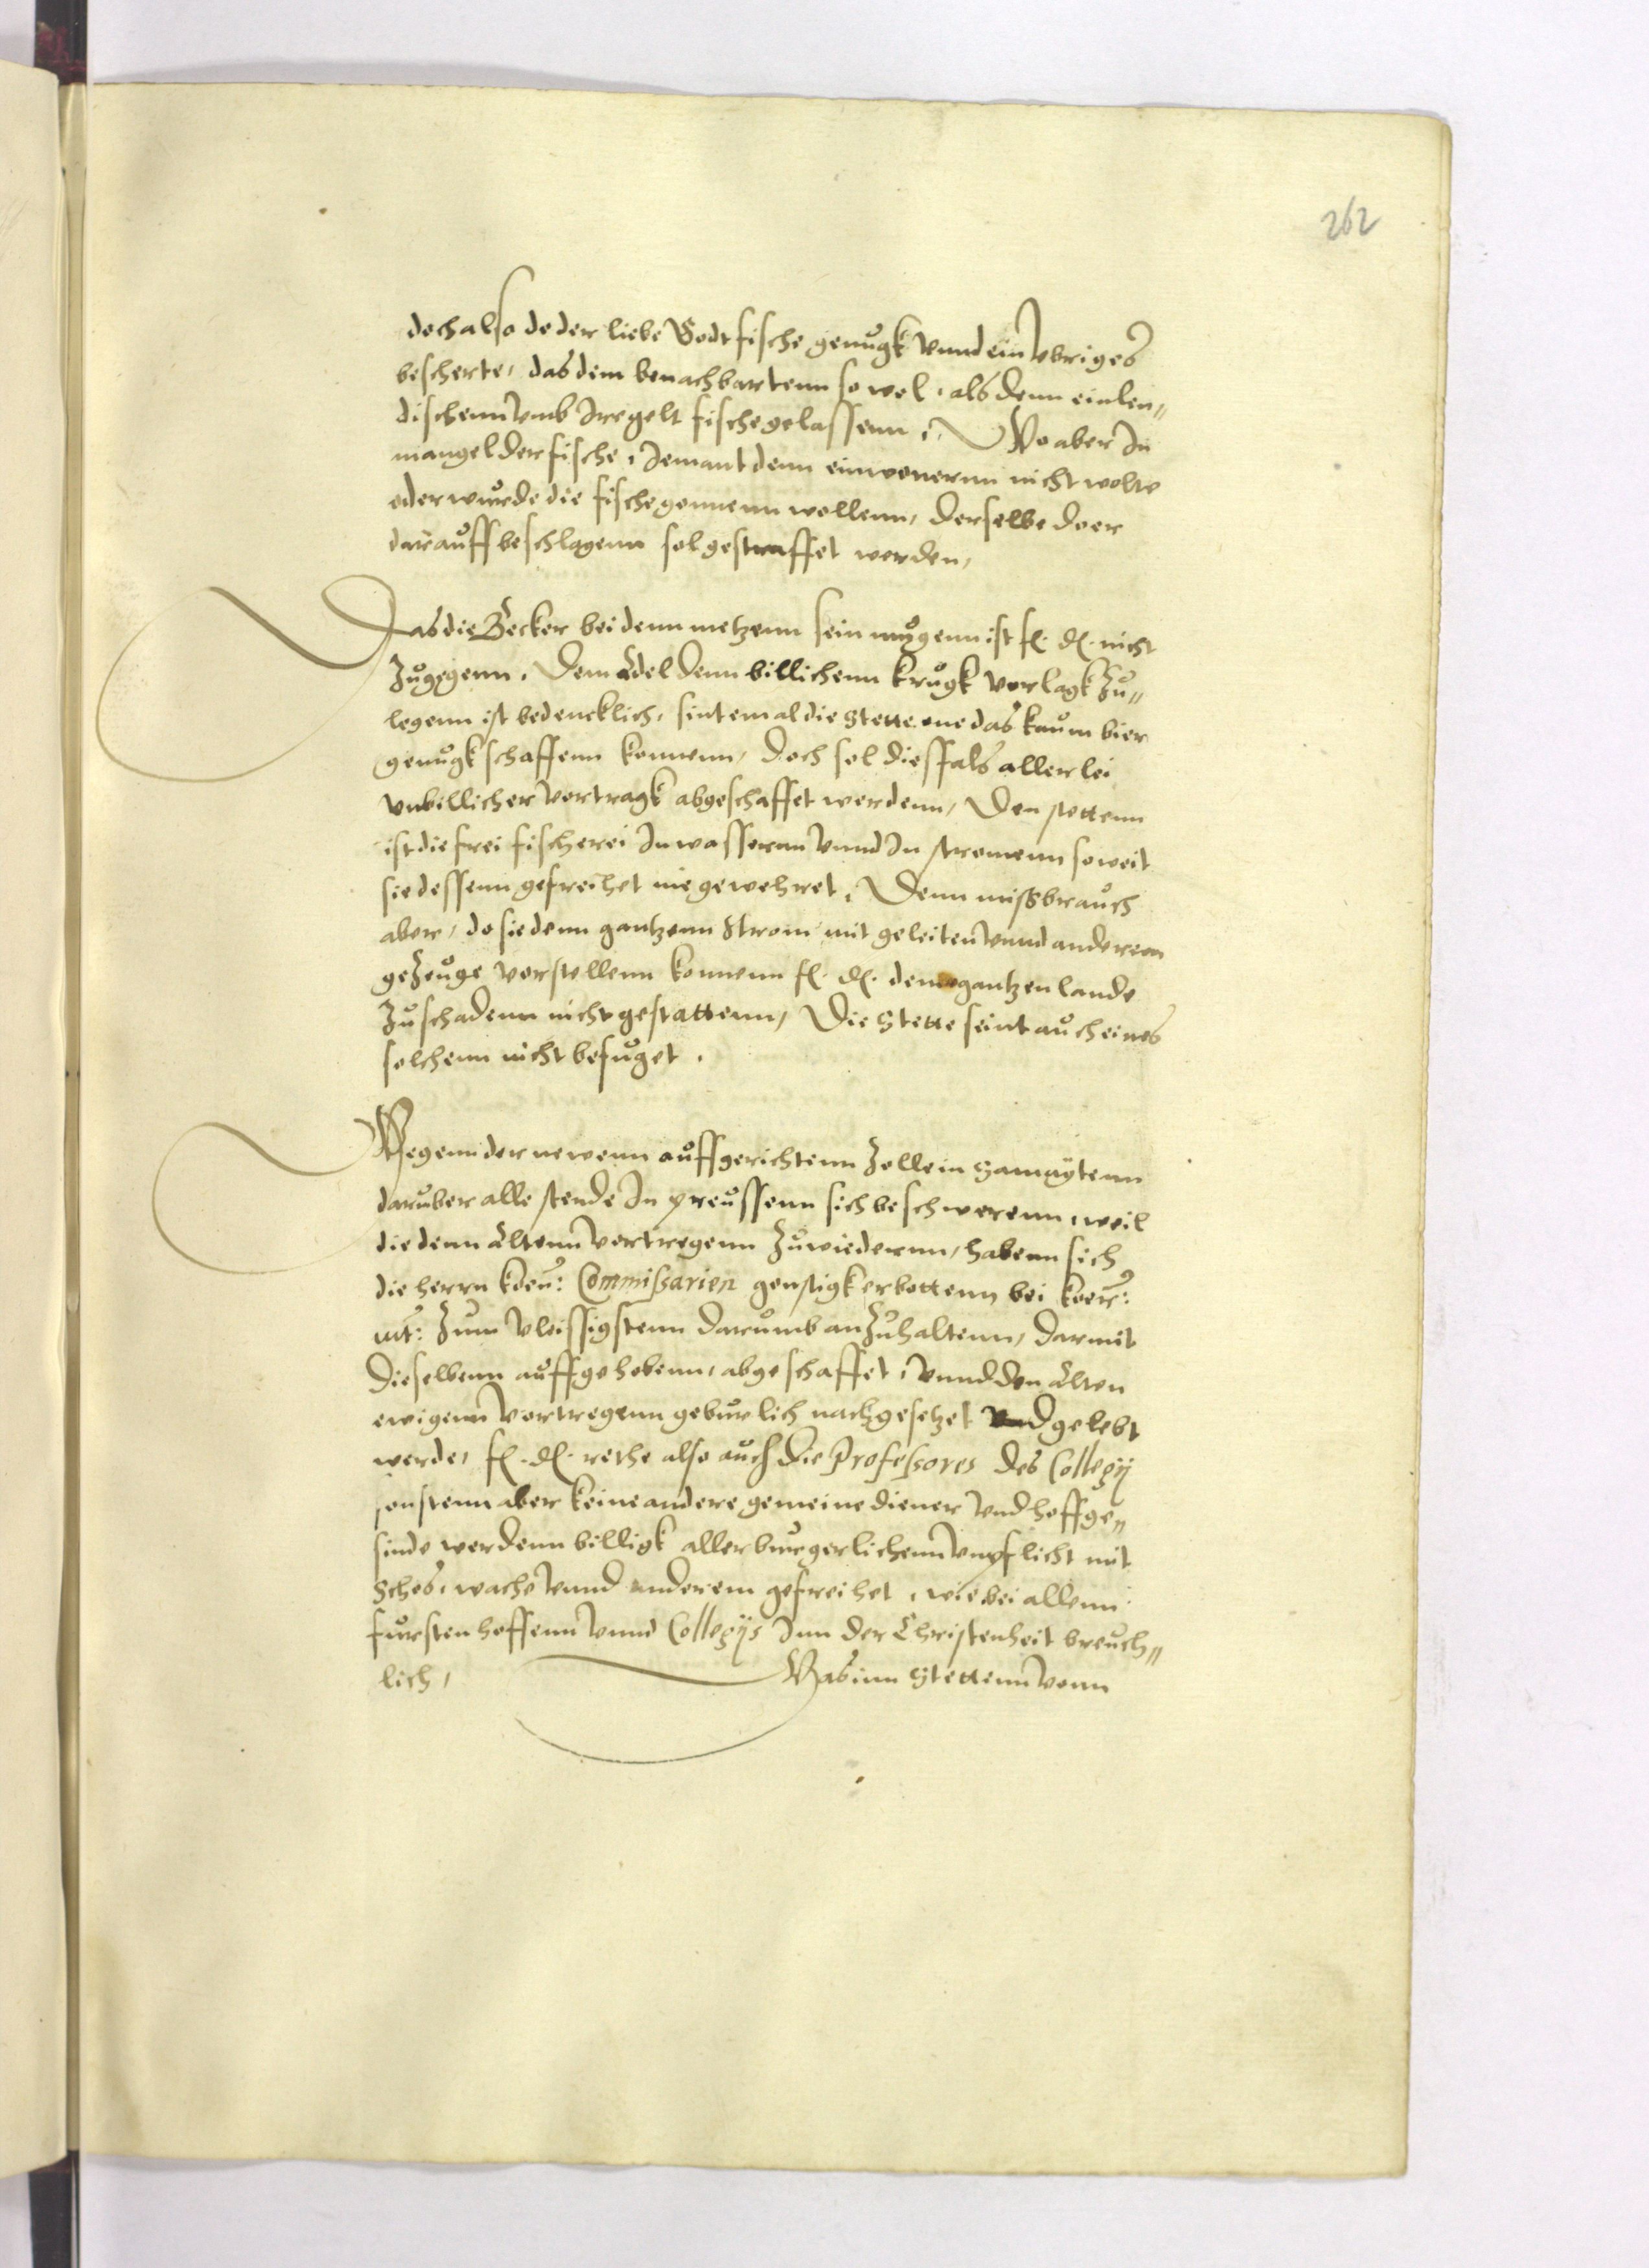 262
doch also do der liebe Godt fische genugk vnnd ein vbriges
bescherte, das dem benachbartenn so wol, als denn einlen„
dischenn vmb Ire gelt fische gelassenn, Wo aber In
mangel der fische, Jemant denn einwonernn nicht wolte
oder wurde die fische gonnenn wollenn, derselbe do er
darauff beschlagenn sol gestraffet werden,
Das die Becker bei denn metzenn sein mugenn ist f. d. nicht
zugegenn, Dem Adel denn billichenn krugk vorlagk zu„
legenn ist bedencklich, sintemal die Stette one das kaum bier
genugk schaffenn konnenn, doch sol diesfals allerlei
vnbillicher vortragk abgeschaffet werdenn, Den stettenn
ist die frei fischerei In wassernn vnnd In stromenn so weit
sie dessenn gefreihet nie gewehret, Denn missbrauch
aber, do sie denn gantzenn Strom mit geleiten vnnd anderem
gezeuge vorstellenn konnenn f. d. dem gantzen lande
zu schadenn nicht gestattenn, Die Stette seint auch eines
solchenn nicht befuget.
Wegenn der newenn auffgerichtenn Zolle in Samaytenn
daruber alle stende In preussenn sich beschwerenn, weil
die denn Altenn vortregenn zuwiedernn, habenn sich
die herrn koen: Commissarien gonstigk erbottenn bei koen:
mt: zum vleissigstenn darumb anzuhaltenn, darmit
dieselbenn auffgehobenn, abgeschaffet, vnnd den Alten
ewigenn vortregenn geburlich nachgesetzet vnd gelebt
werde, f. d. rethe also auch die Professores des Collegij
sonstenn aber keine andere gemeine diener vnd hoffge„
sinde werdenn billigk aller burgerlichenn vnpflicht mit
Schos, wache vnnd anderem gefreihet, wie bei allenn
fursten hoffenn vnnd Collegijs Inn der Christenheit breuch„
lich, Was inn Stettenn vonn